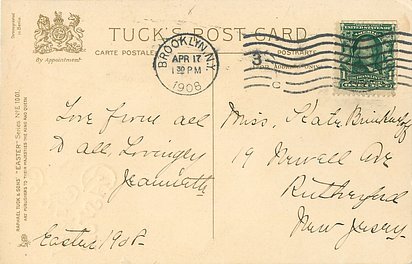 TUCK'S POST CARD
CARTE POSTALE
POSTKARTE
By Appointment
BROOKLYN, N.Y.
APR 17
1 30 PM
1908
3
C
RAPHAEL TUCK & SONS' "EASTER" Series No. E 1001.
ART PUBLISHERS TO THEIR MAJESTIES THE KING AND QUEEN
Love from all
to all, Lovingly
Jeannette
Easter 1908
Miss. Kate
19 Newell Ave
Rutherford
New Jersey.